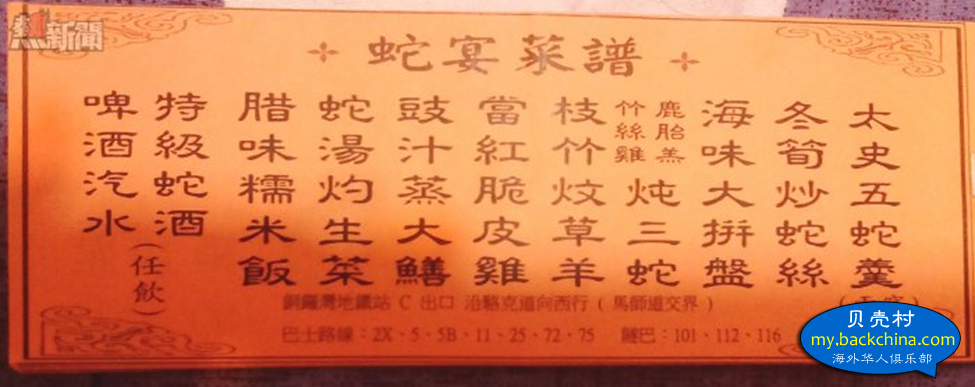 熱新聞
蛇宴菜譜
太史五蛇羹
冬筍炒蛇絲
海味大拼盤
鹿胎羔
竹絲雞
炖三蛇
枝竹炆草羊
當紅脆皮雞
豉汁蒸大鱔
蛇湯灼生菜
腊味糯米飯
特級蛇酒
啤酒汽水
(任飲)
銅鑼灣地鐵站 C 出口 沿駱克道向西行 ( 馬師道交界 )
巴士路線：2X、5、5B、11、25、72、75 隧巴：101、112、116
贝壳村
my.backchina.com
海外华人俱乐部